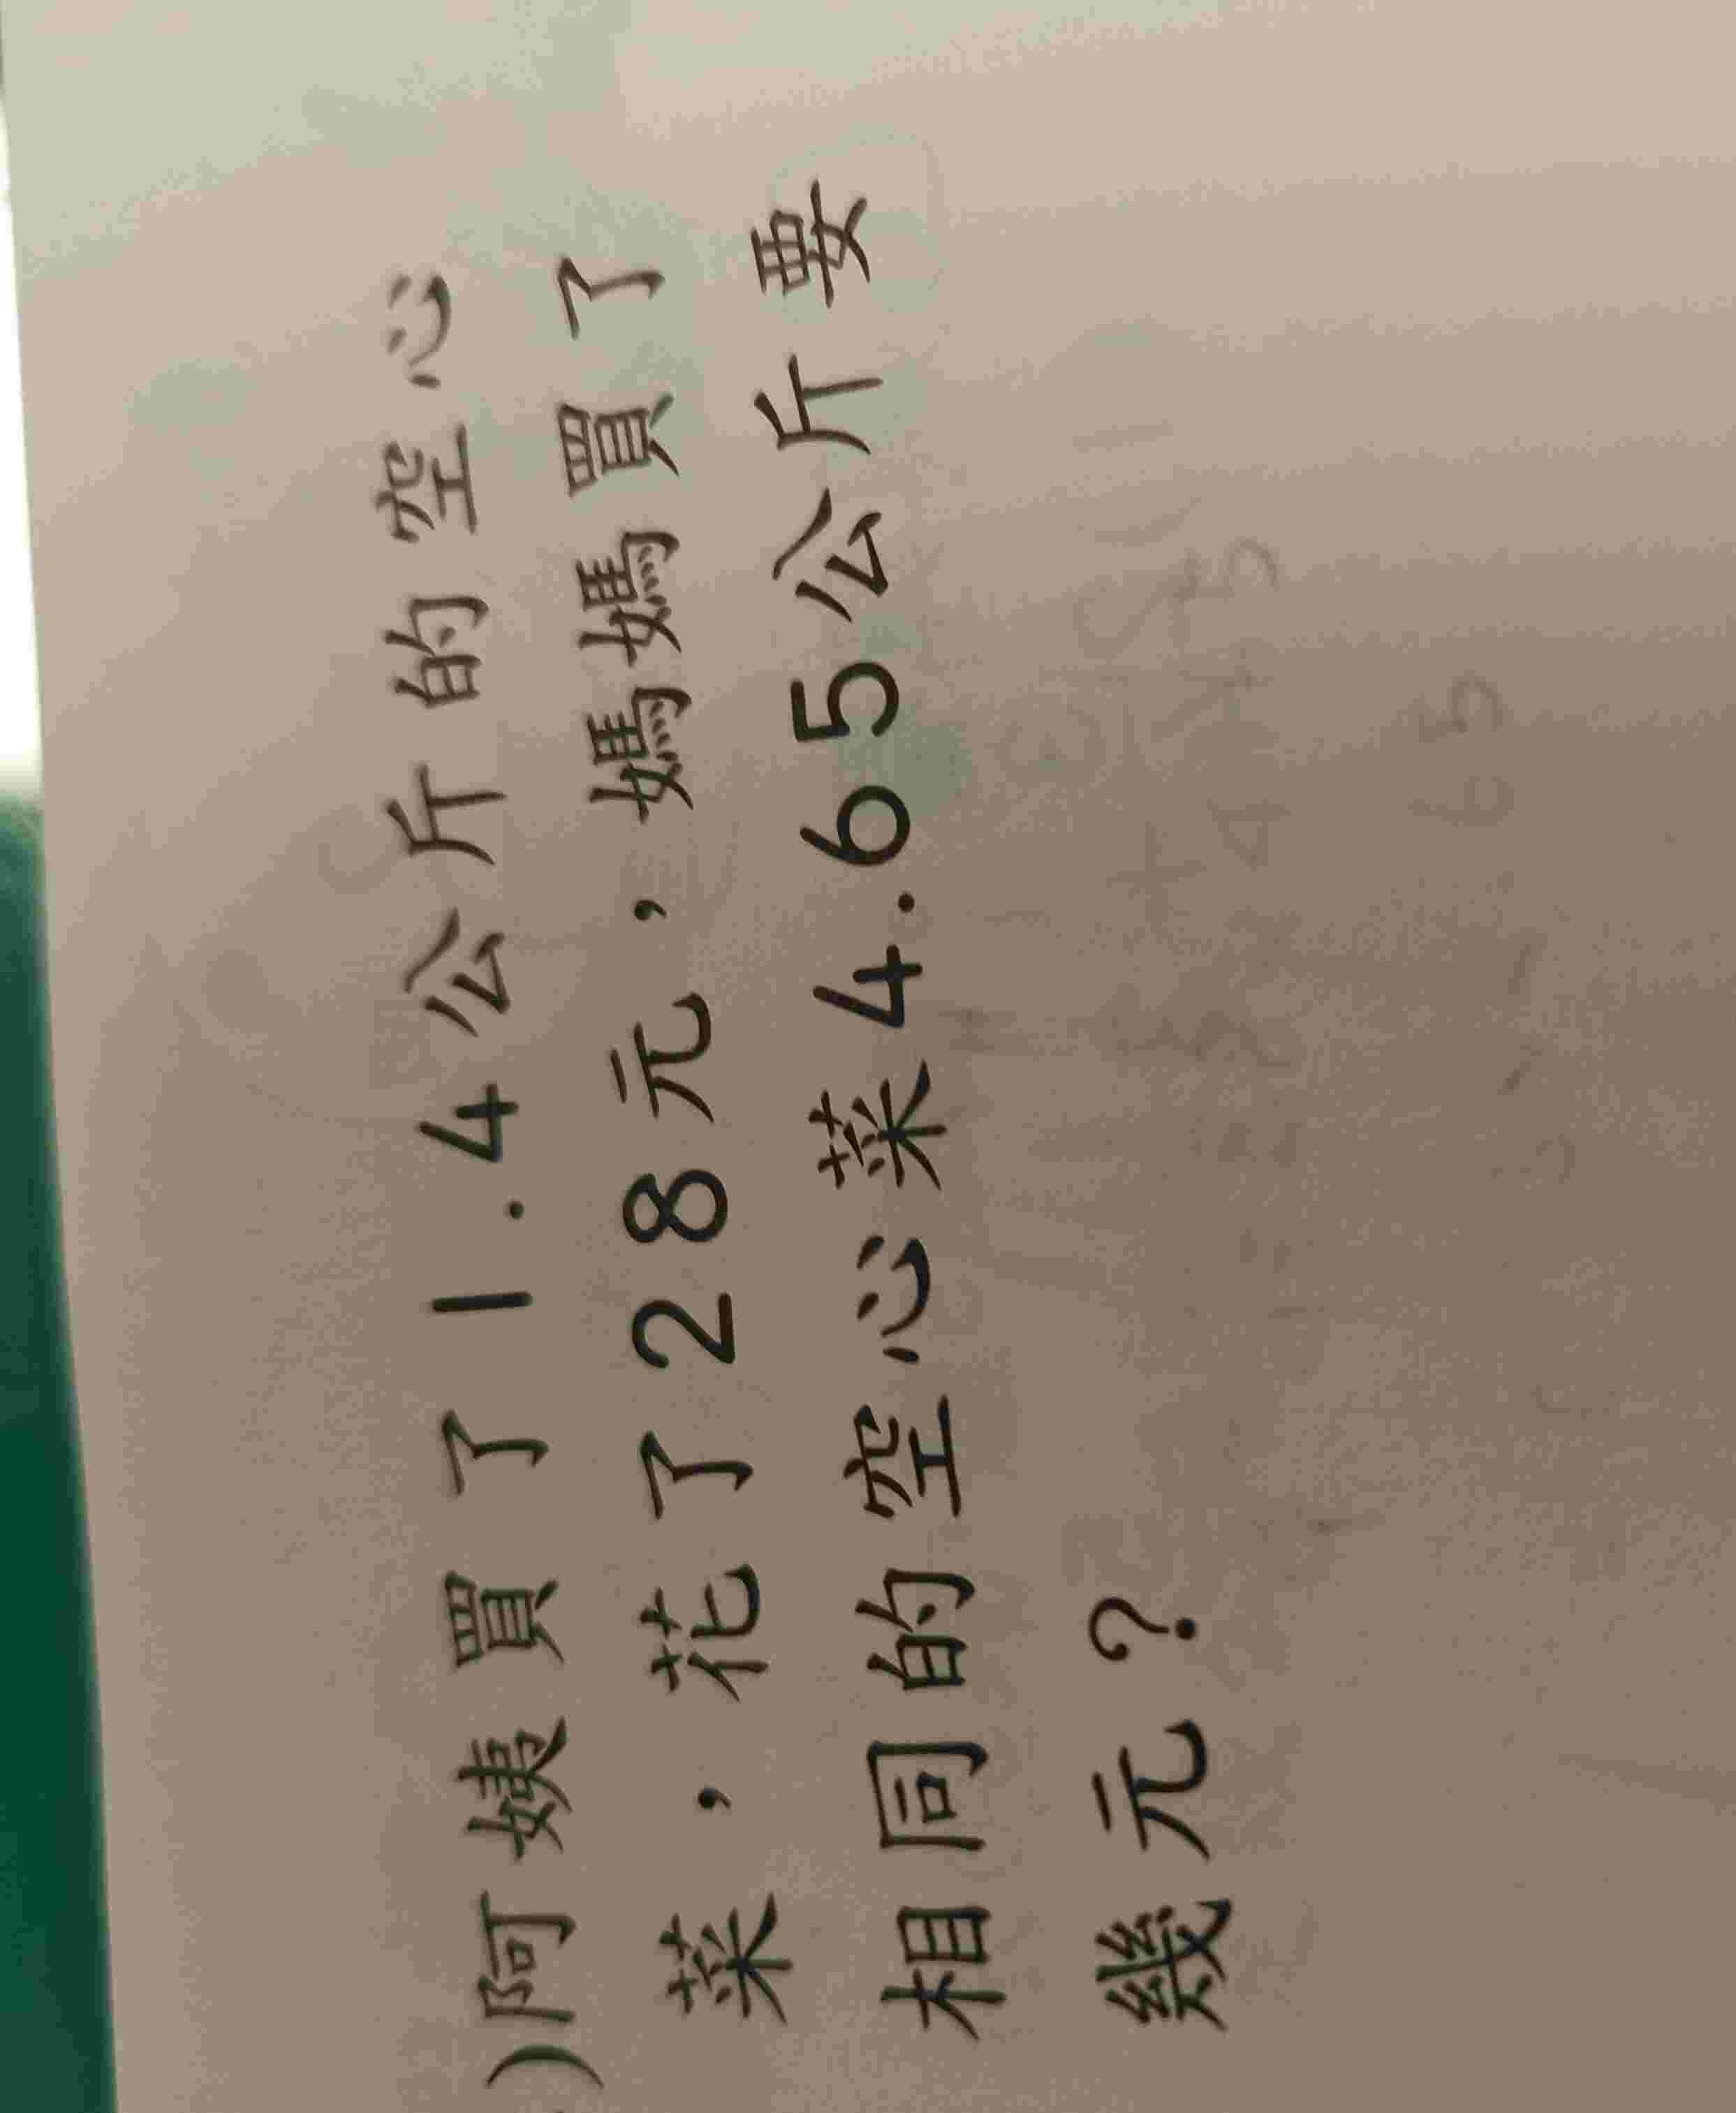 )阿姨買了1.4公斤的空心
菜，花了28元，媽媽買了
相同的空心菜4.65公斤要
幾元？